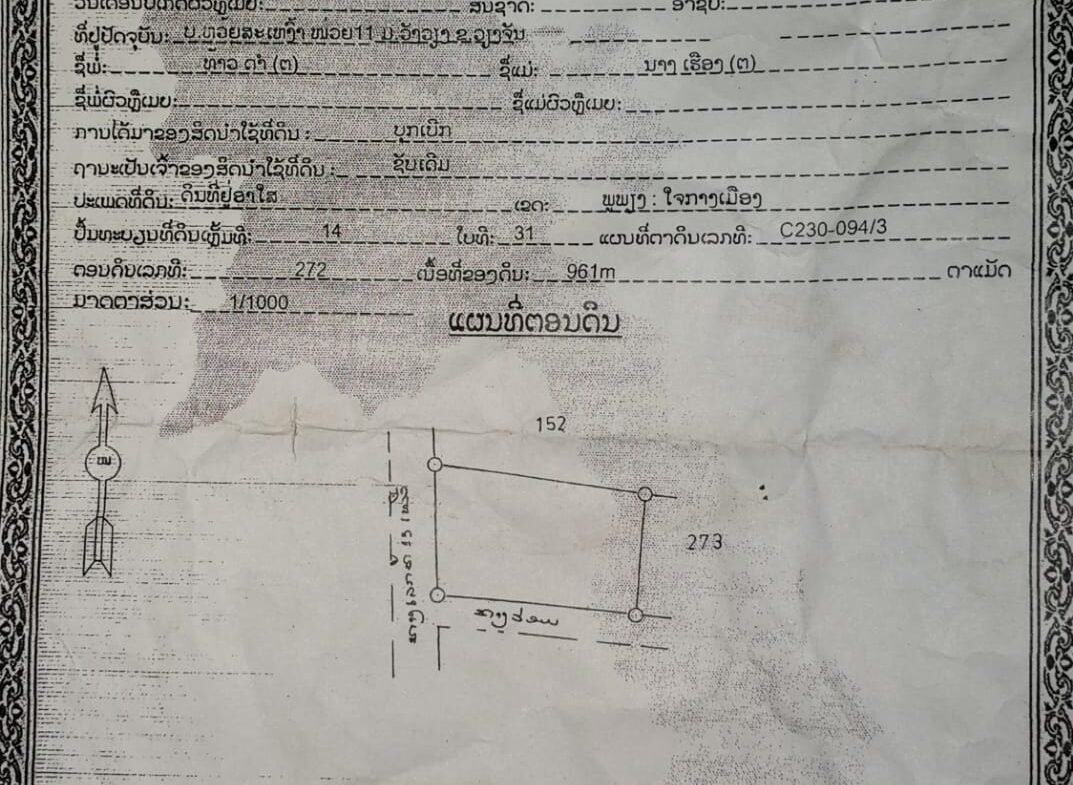 ວັນເດືອນປີເກີດຜົວຫຼືເມຍ: ສັນຊາດ: ອາຊີບ:
ທີ່ຢູ່ປັດຈຸບັນ: ບ.ຫ້ວຍສະເຫງົ້າ ໜ່ວຍ11 ມ.ວັງວຽງ ຂ.ວຽງຈັນ
ຊື່ພໍ່: ທ້າວ ດຳ (ຕ) ຊື່ແມ່: ນາງ ເຮືອງ (ຕ)
ຊື່ພໍ່ຜົວຫຼືເມຍ: ຊື່ແມ່ຜົວຫຼືເມຍ:
ການໄດ້ມາຂອງສິດນຳໃຊ້ທີ່ດິນ : ບຸກເບີກ
ຖານະເປັນເຈົ້າຂອງສິດນຳໃຊ້ທີ່ດິນ : ຊັບເດີມ
ປະເພດທີ່ດິນ: ດິນທີ່ຢູ່ອາໃສ ເຂດ: ພູພຽງ : ໃຈກາງເມືອງ
ປຶ້ມທະບຽນທີ່ດິນເຫຼັ້ມທີ: 14 ໃບທີ: 31 ແຜນທີ່ຕາດິນເລກທີ: C230-094/3
ຕອນດິນເລກທີ: 272 ເນື້ອທີ່ຂອງດິນ: 961m ຕາແມັດ
ມາດຕາສ່ວນ: 1/1000
ແຜນທີ່ຕອນດິນ
152
273
ໜ
ທາງເລກທີ 13 ເໜືອ
ທາງຮ່ອມ